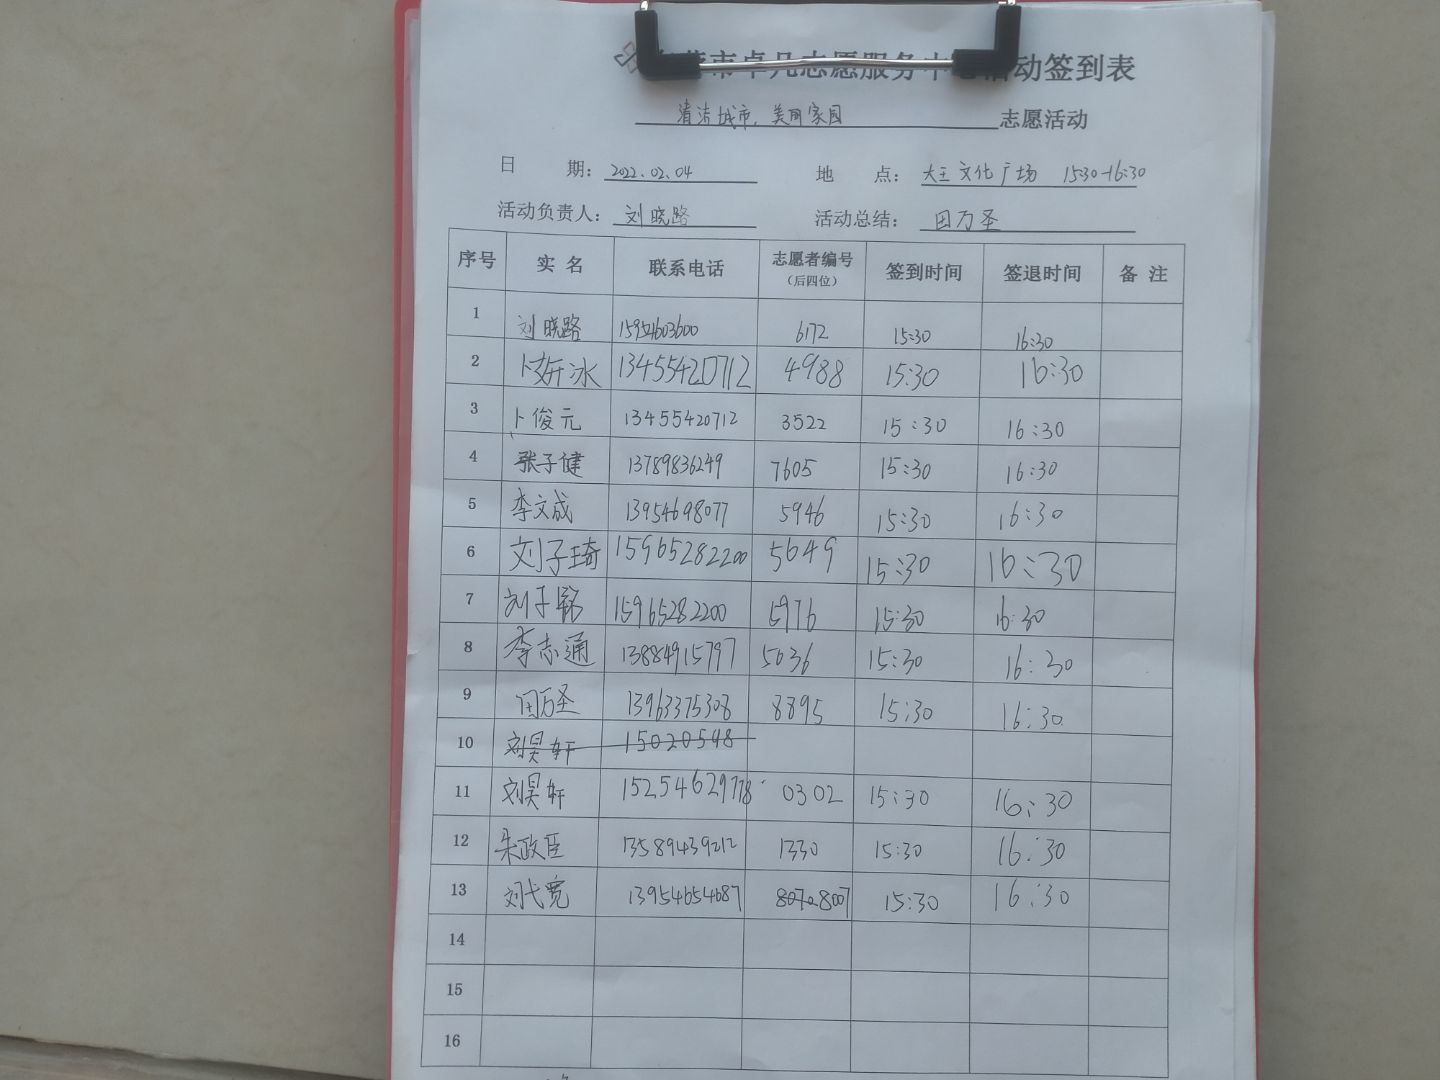 市卓凡志愿服务中心活动签到表
清洁城市，美丽家园 志愿活动
日 期： 2022.02.04 地 点： 大王文化广场 15:30-16:30
活动负责人： 刘晓路 活动总结： 田万圣
序号 实 名 联系电话 志愿者编号（后四位） 签到时间 签退时间 备 注
1 刘晓路 15921603600 6172 15:30 16:30
2 卜妍冰 13455420712 4988 15:30 16:30
3 卜俊元 13455420712 3522 15:30 16:30
4 张子健 13789836249 7605 15:30 16:30
5 李文成 13954698077 5946 15:30 16:30
6 刘子琦 15965282200 5649 15:30 16:30
7 刘子铭 15965282200 5976 15:30 16:30
8 李志通 13884915797 5036 15:30 16:30
9 田万圣 13963375308 8895 15:30 16:30
10 刘昊轩 15020548
11 刘昊轩 15254629778 0302 15:30 16:30
12 朱政臣 13589439212 1330 15:30 16:30
13 刘弋宽 13954654687 8070 8007 15:30 16:30
14
15
16